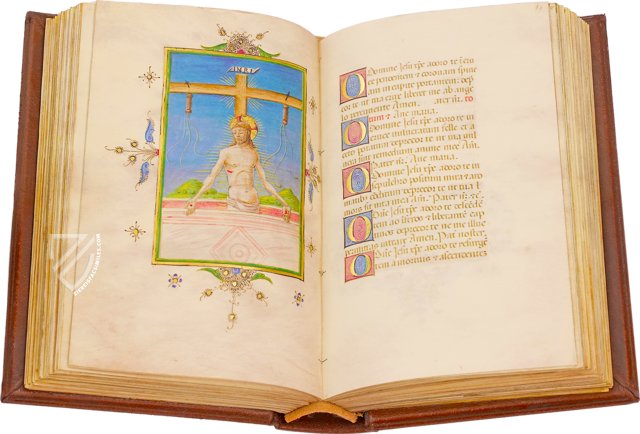 INRI
Domine Jesu xpe adoro te in cru
ce pendentem et coronam spine
am in capite portantem
cor ut tua crux liberet me ab ange
lo percutiente Amen. Pater nr. to
tum et Ave maria.
Domine Jesu xpe adoro te in
cruce vulneratum felle et a
ceto potatum deprecor te ut tua
sint remedium anime mee Am
Pater nr. Ave maria.
Domine Jesu xpe adoro te in
sepulchro positum mirra et aro
matibus conditum deprecor te ut tua
mors sit vita mea Amen. Pater nr. Ave
Domine Jesu xpe adoro te descēdē
tem ad inferos et liberantē cap
tivos deprecor te ne me illuc
permittas intrare Amen. Pater noster.
Domine Jesu xpe adoro te resurgē
tem a mortuis et ascendentem